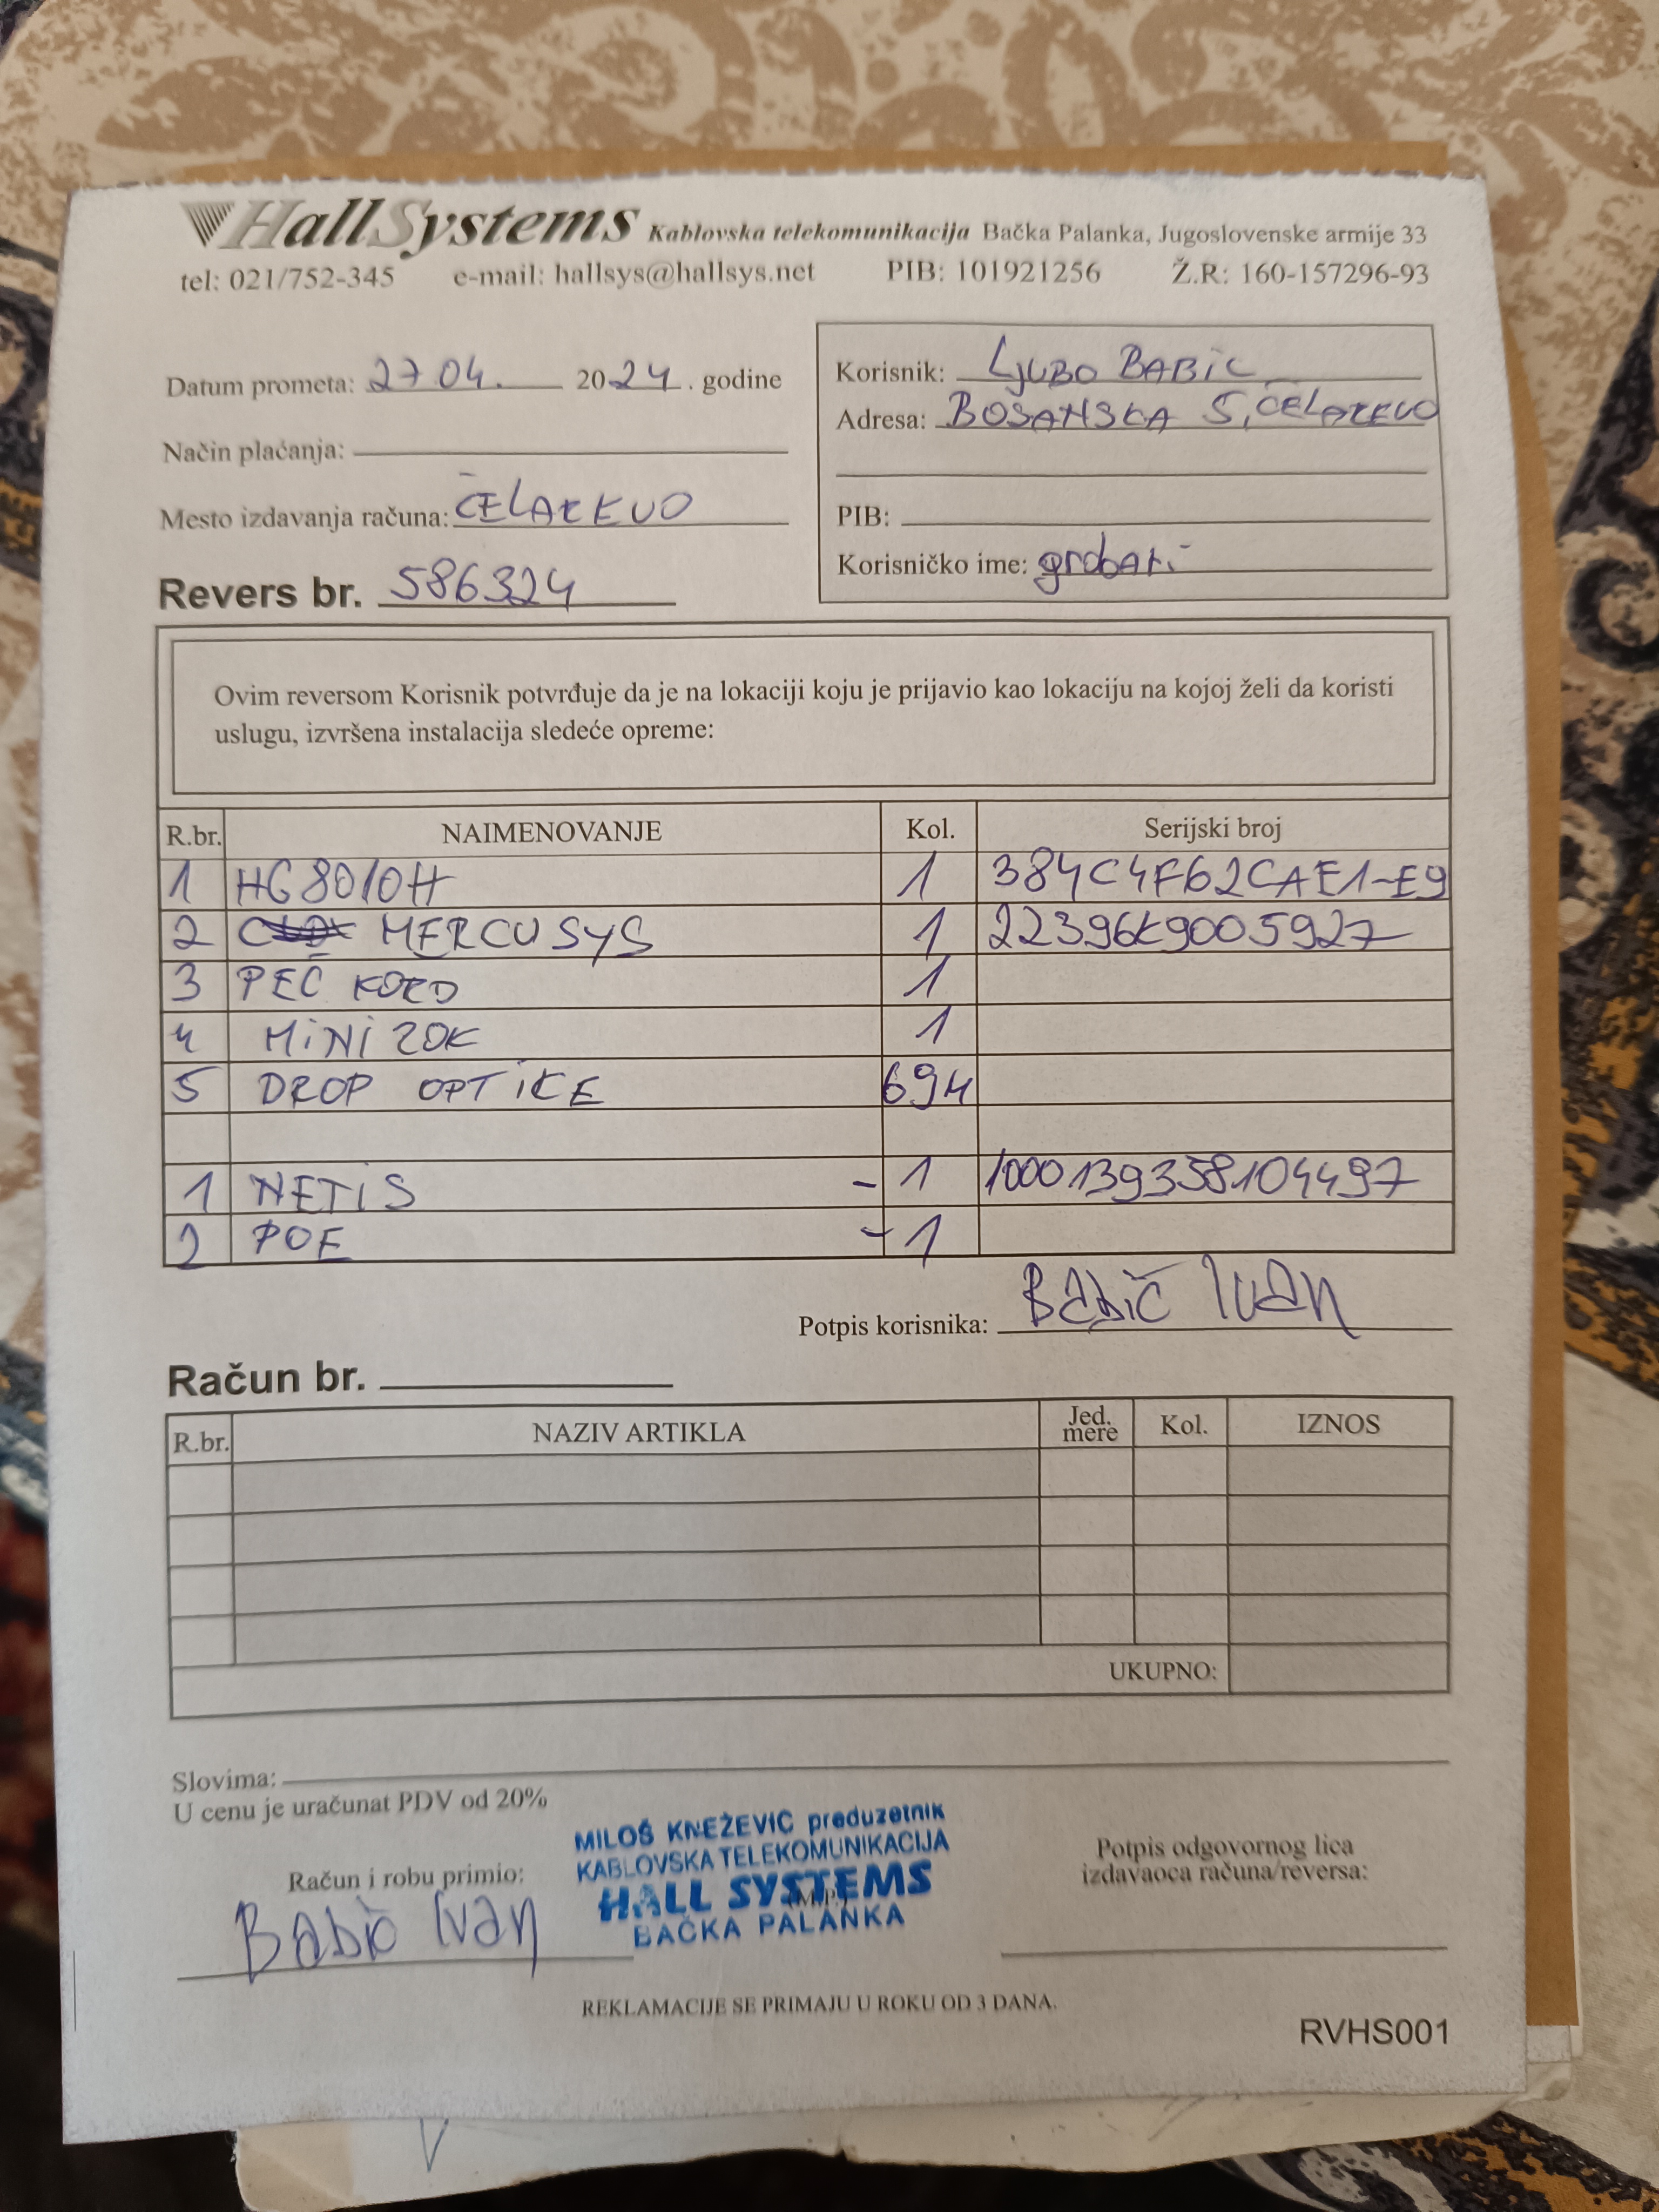 HallSystems Kablovska telekomunikacija Bačka Palanka, Jugoslovenske armije 33
tel: 021/752-345 e-mail: hallsys@hallsys.net PIB: 101921256 Ž.R: 160-157296-93
Datum prometa: 27 04. 2024. godine
Način plaćanja:
Mesto izdavanja računa: ČELAREVO
Revers br. 586324
Korisnik: LJUBO BABIC
Adresa: BOSANSKA 5, ČELAREVO
PIB:
Korisničko ime: grobari
Ovim reversom Korisnik potvrđuje da je na lokaciji koju je prijavio kao lokaciju na kojoj želi da koristi
uslugu, izvršena instalacija sledeće opreme:
R.br. NAIMENOVANJE Kol. Serijski broj
1 HG8010H 1 384C4F62CAE1-E9
2 MERCUSYS 1 22396K9005927
3 PEČ KORD 1
4 MINI ZOK 1
5 DROP OPTIKE 694
1 NETIS -1 1000139358104497
2 POE -1
Potpis korisnika: Babić Ivan
Račun br.
R.br. NAZIV ARTIKLA Jed. mere Kol. IZNOS
UKUPNO:
Slovima:
U cenu je uračunat PDV od 20%
Račun i robu primio:
Babić Ivan
MILOŠ KNEŽEVIĆ preduzetnik
KABLOVSKA TELEKOMUNIKACIJA
HALL SYSTEMS
(M.P.)
BAČKA PALANKA
Potpis odgovornog lica
izdavaoca računa/reversa:
REKLAMACIJE SE PRIMAJU U ROKU OD 3 DANA.
RVHS001